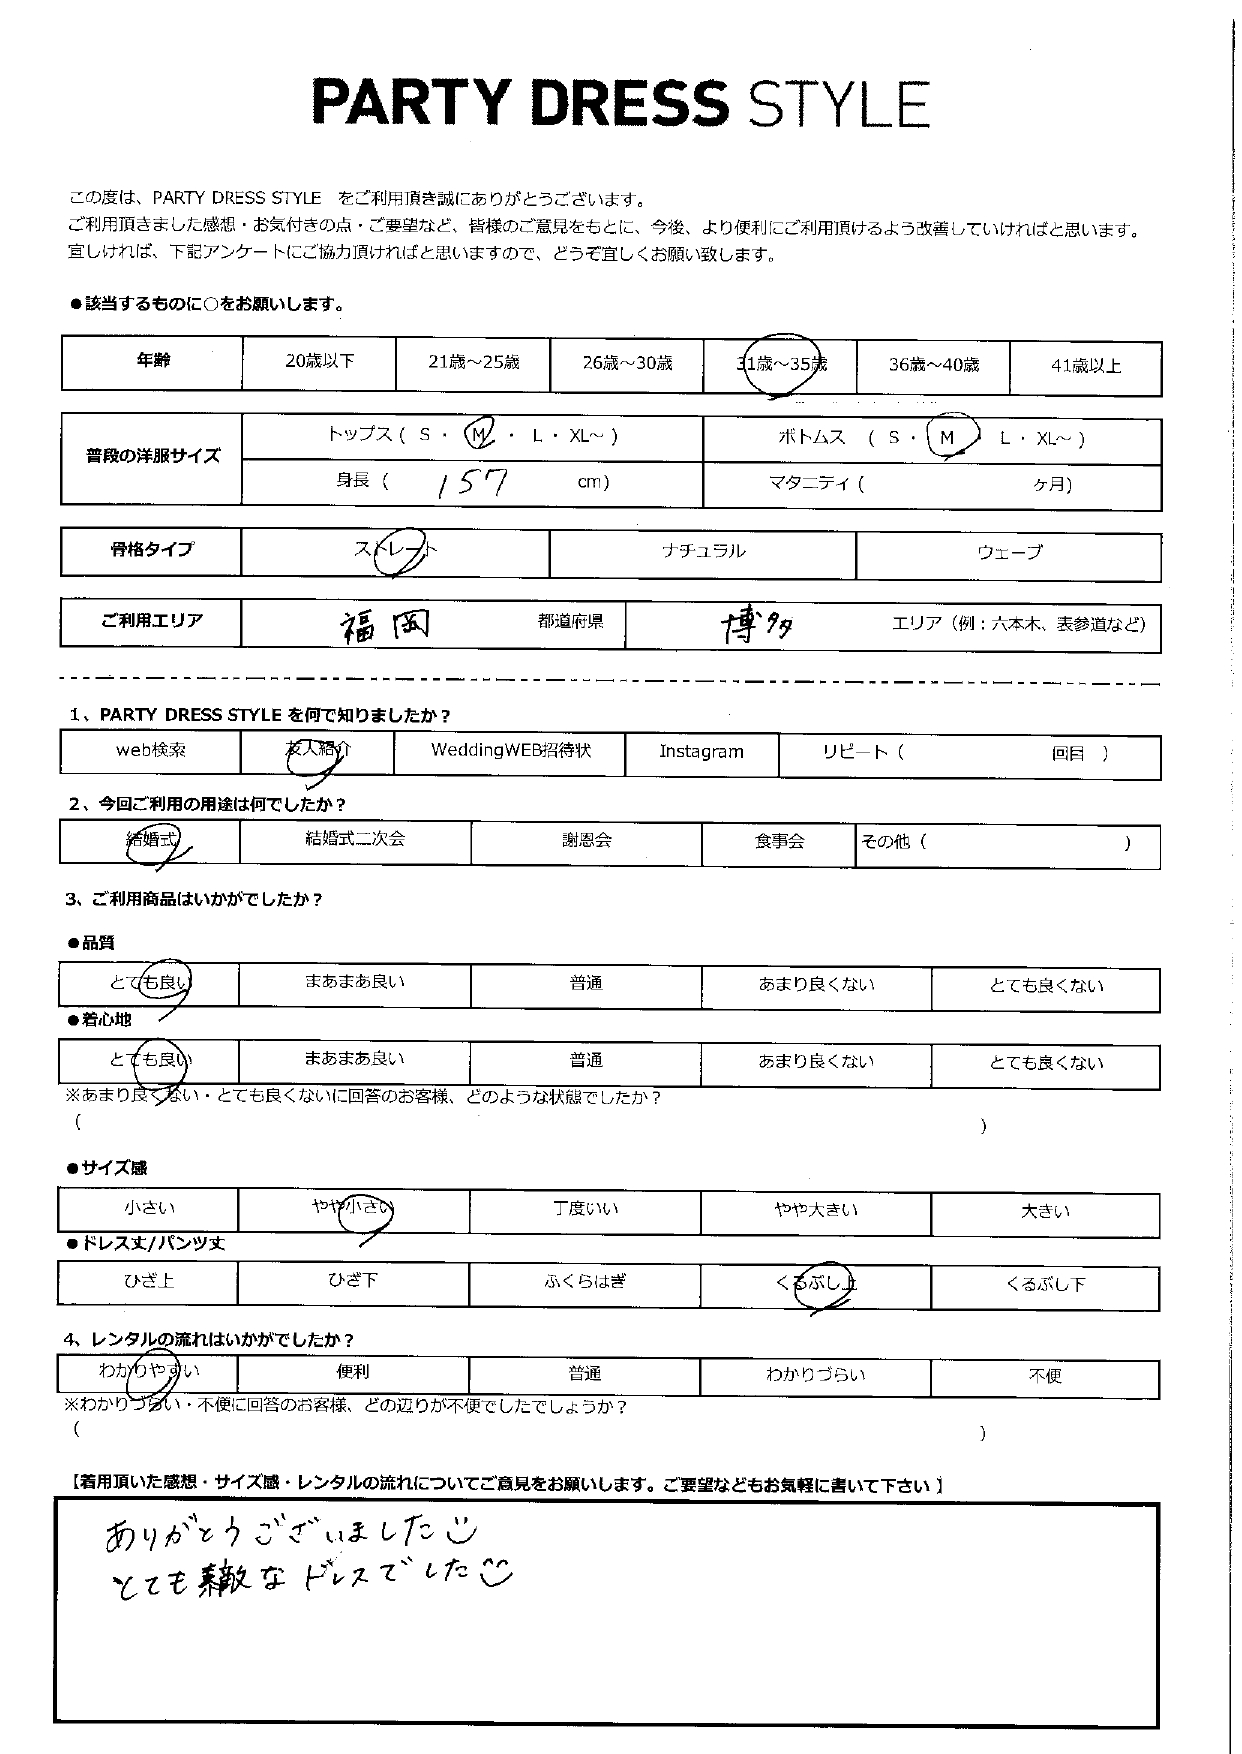 PARTY DRESS STYLE
この度は、PARTY DRESS STYLE をご利用頂き誠にありがとうございます。
ご利用頂きました感想・お気付きの点・ご要望など、皆様のご意見をもとに、今後、より便利にご利用頂けるよう改善していければと思います。
宜しければ、下記アンケートにご協力頂ければと思いますので、どうぞ宜しくお願い致します。
●該当するものに○をお願いします。
年齢 20歳以下 21歳～25歳 26歳～30歳 31歳～35歳 36歳～40歳 41歳以上
普段の洋服サイズ トップス ( S ・ M ・ L ・ XL～ ) ボトムス ( S ・ M ・ L ・ XL～ )
身長 ( 157 cm) マタニティ ( ヶ月)
骨格タイプ ストレート ナチュラル ウェーブ
ご利用エリア 福岡 都道府県 博多 エリア（例：六本木、表参道など）
1、PARTY DRESS STYLE を何で知りましたか？
web検索 友人紹介 WeddingWEB招待状 Instagram リピート ( 回目 )
2、今回ご利用の用途は何でしたか？
結婚式 結婚式二次会 謝恩会 食事会 その他 ( )
3、ご利用商品はいかがでしたか？
●品質
とても良い まあまあ良い 普通 あまり良くない とても良くない
●着心地
とても良い まあまあ良い 普通 あまり良くない とても良くない
※あまり良くない・とても良くないに回答のお客様、どのような状態でしたか？
( )
●サイズ感
小さい やや小さい 丁度いい やや大きい 大きい
●ドレス丈/パンツ丈
ひざ上 ひざ下 ふくらはぎ くるぶし上 くるぶし下
4、レンタルの流れはいかがでしたか？
わかりやすい 便利 普通 わかりづらい 不便
※わかりづらい・不便に回答のお客様、どの辺りが不便でしたでしょうか？
( )
【着用頂いた感想・サイズ感・レンタルの流れについてご意見をお願いします。ご要望などもお気軽に書いて下さい】
ありがとうございました
とても素敵なドレスでした